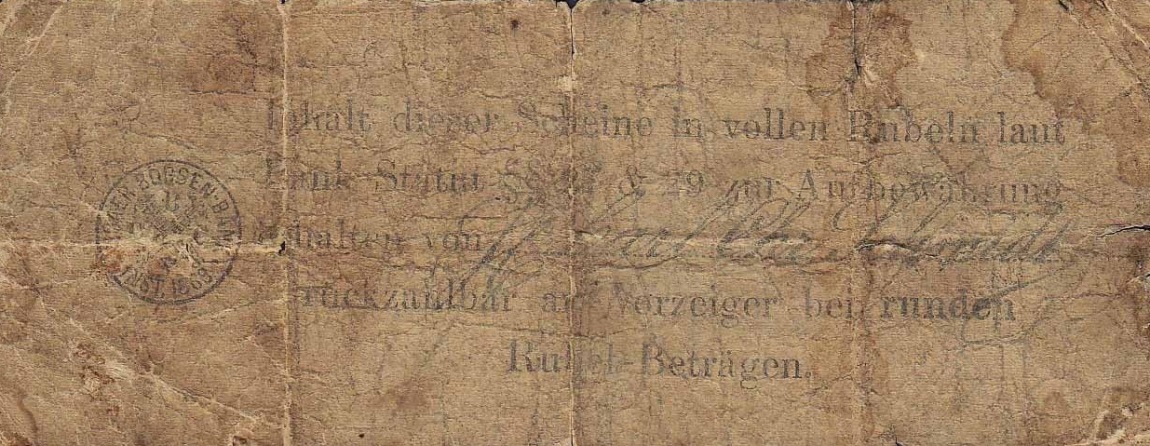 Inhalt dieser Scheine in vollen Rubeln laut
Bank Statut §§ & 29 zur Aufbewahrung
erhalten von Carl Schmidt
rückzahlbar an Vorzeiger bei runden
Rubel-Beträgen.
BOGSEN-B
INST. 1863